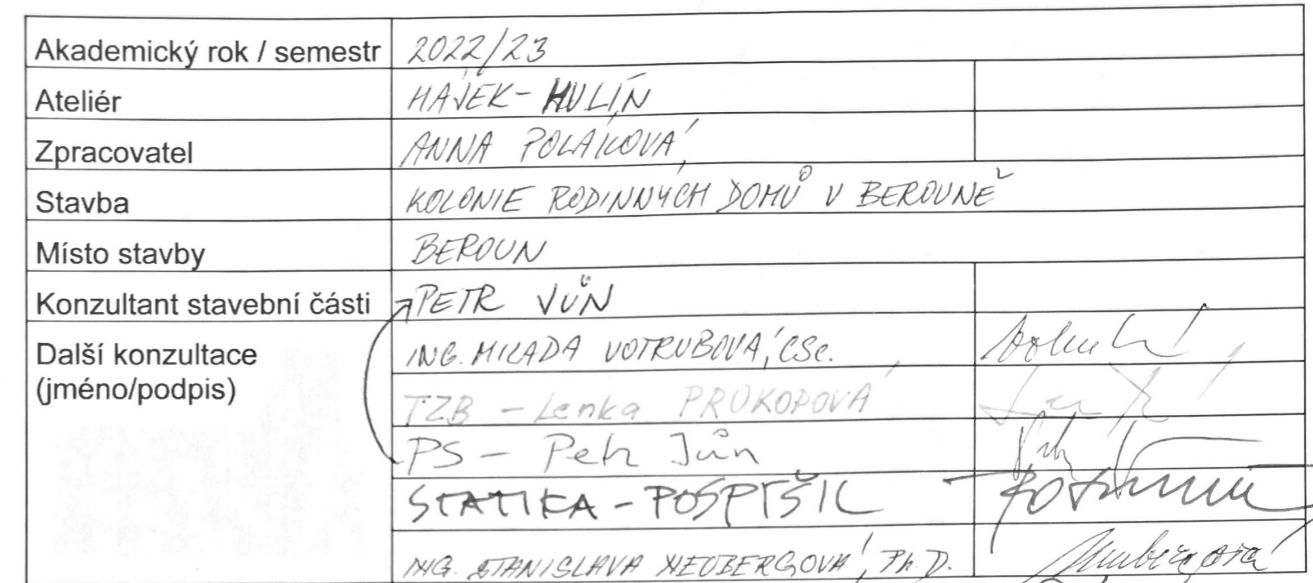 Akademický rok / semestr 2022/23
Ateliér HÁJEK - HULÍN
Zpracovatel ANNA POLÁKOVÁ
Stavba KOLONIE RODINNÝCH DOMŮ V BEROUNĚ
Místo stavby BEROUN
Konzultant stavební části PETR JŮN
Další konzultace ING. MILADA VOTRUBOVÁ, CSc.
(jméno/podpis)
TZB - Lenka PROKOPOVÁ
PS - Petr Jůn
STATIKA - POSPÍŠIL
ING. STANISLAVA NEUBERGOVÁ, Ph.D.